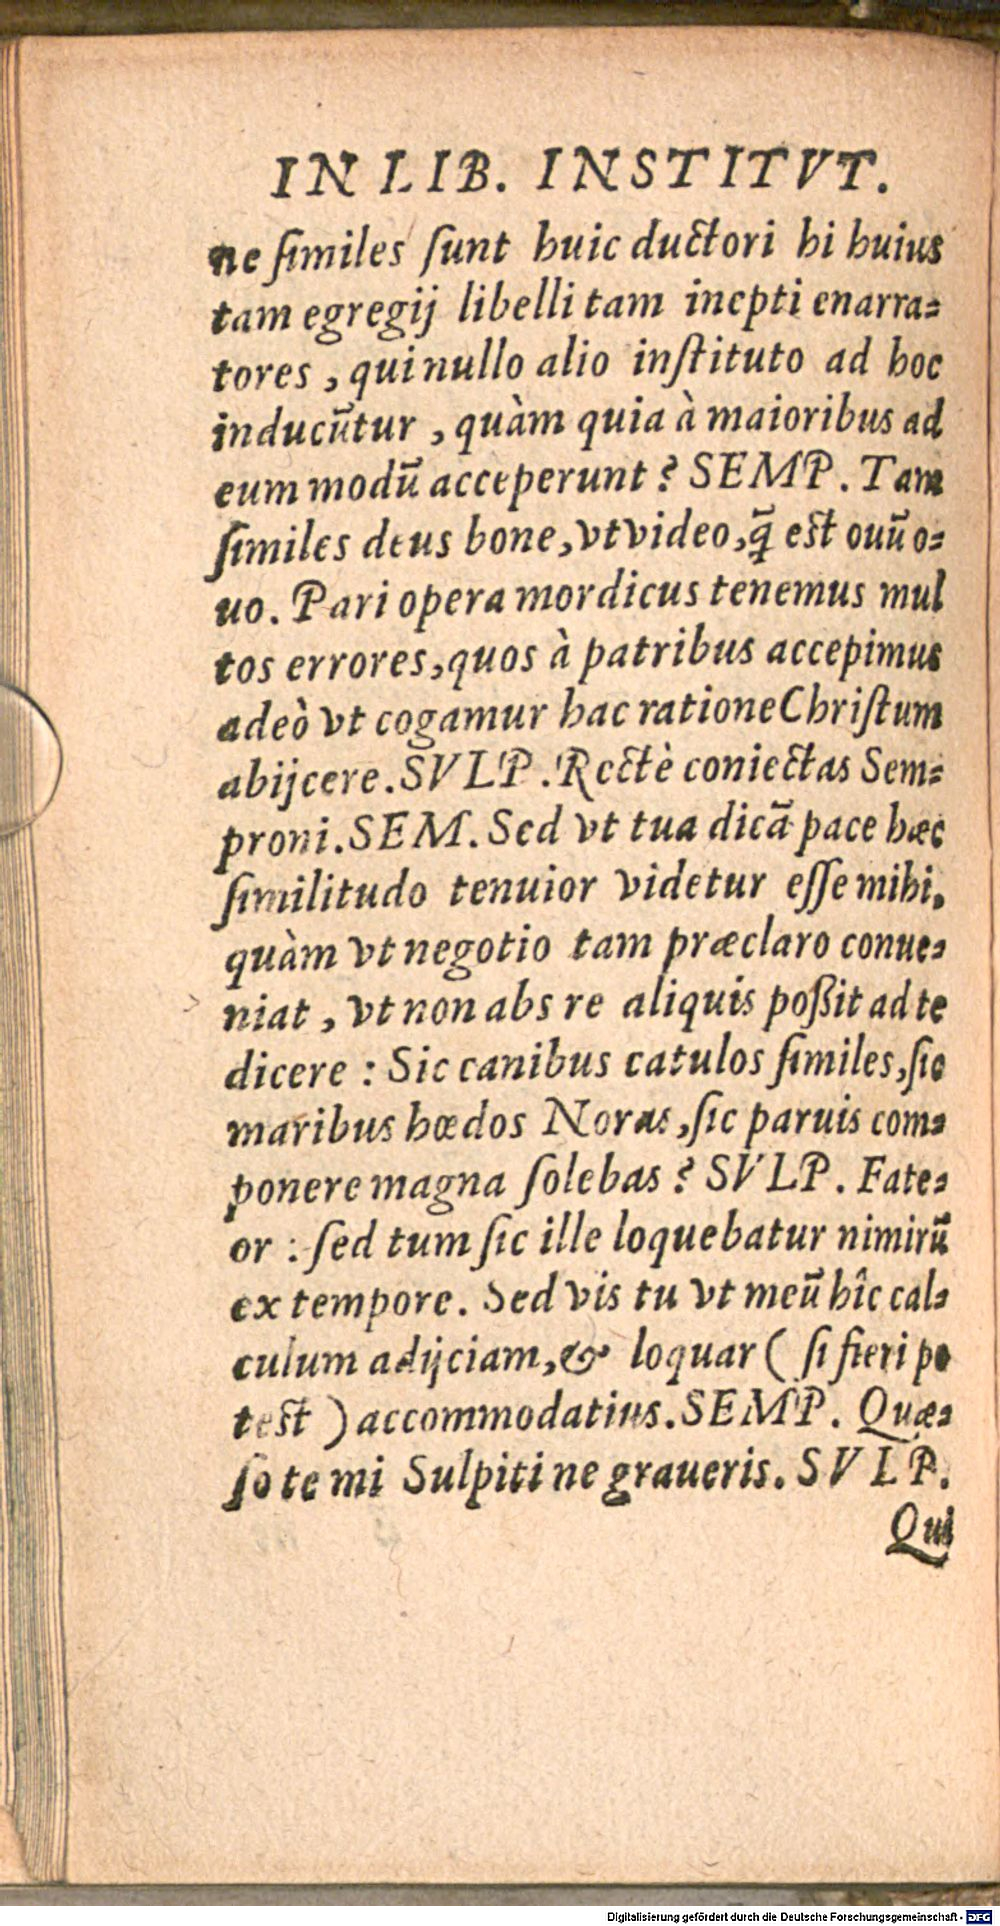 IN LIB. INSTITVT.
ne ſimiles ſunt huic ductori hi huius
tam egregij libelli tam inepti enarra⸗
tores, qui nullo alio inſtituto ad hoc
inducũtur, quàm quia à maioribus ad
eum modũ acceperunt? SEMP. Tam
ſimiles deus bone, vt video, q̃ est ouũ o⸗
uo. Pari opera mordicus tenemus mul
tos errores, quos à patribus accepimus
adeò vt cogamur hac ratione Chriſtum
abijcere. SVLP. Rectè coniectas Sem⸗
proni. SEM. Sed vt tua dicã pace hæc
ſimilitudo tenuior videtur eſſe mihi,
quàm vt negotio tam præclaro conue⸗
niat, vt non abs re aliquis poßit ad te
dicere: Sic canibus catulos ſimiles, ſic
maribus hœdos Noras, ſic paruis com⸗
ponere magna ſolebas? SVLP. Fate⸗
or: ſed tum ſic ille loquebatur nimirũ
ex tempore. Sed vis tu vt meũ hîc cal⸗
culum adijciam, & loquar (ſi fieri po
test) accommodatius. SEMP. Quæ⸗
ſo te mi Sulpiti ne graueris. SVLP.
Qui
Digitalisierung gefördert durch die Deutsche Forschungsgemeinschaft - DFG